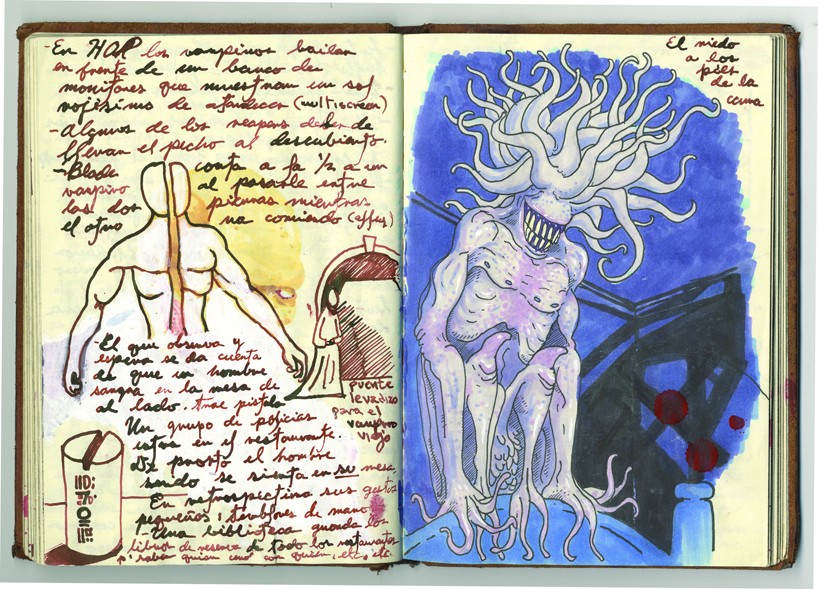 - En HOP los vampiros bailan
en frente de un banco de
monitores que muestran un sol
rojísimo de atardecer (multiscreen)
- Algunos de los reapers deben de
llevan el pecho al descubierto.
- Blade corta a la 1/2 a un
vampiro al pasarle entre
las dos piernas mientras
el otro va corriendo (effx)
- El que observa y
espera se da cuenta
de que un hombre
sangra en la mesa de
al lado, trae pistola
Un grupo de policias
estas en el restaurante.
De pronto el hombre
se sienta en su mesa.
En retrospectiva sus gestos
pequeños, temblores de mano
- Una biblioteca guarda los
libros de reserva de todos los restaurantes
p' saber quien comio con quien, etc, etc.
puente
levadizo
para el
vampiro
viejo
El miedo
a los
pies
de la
cama